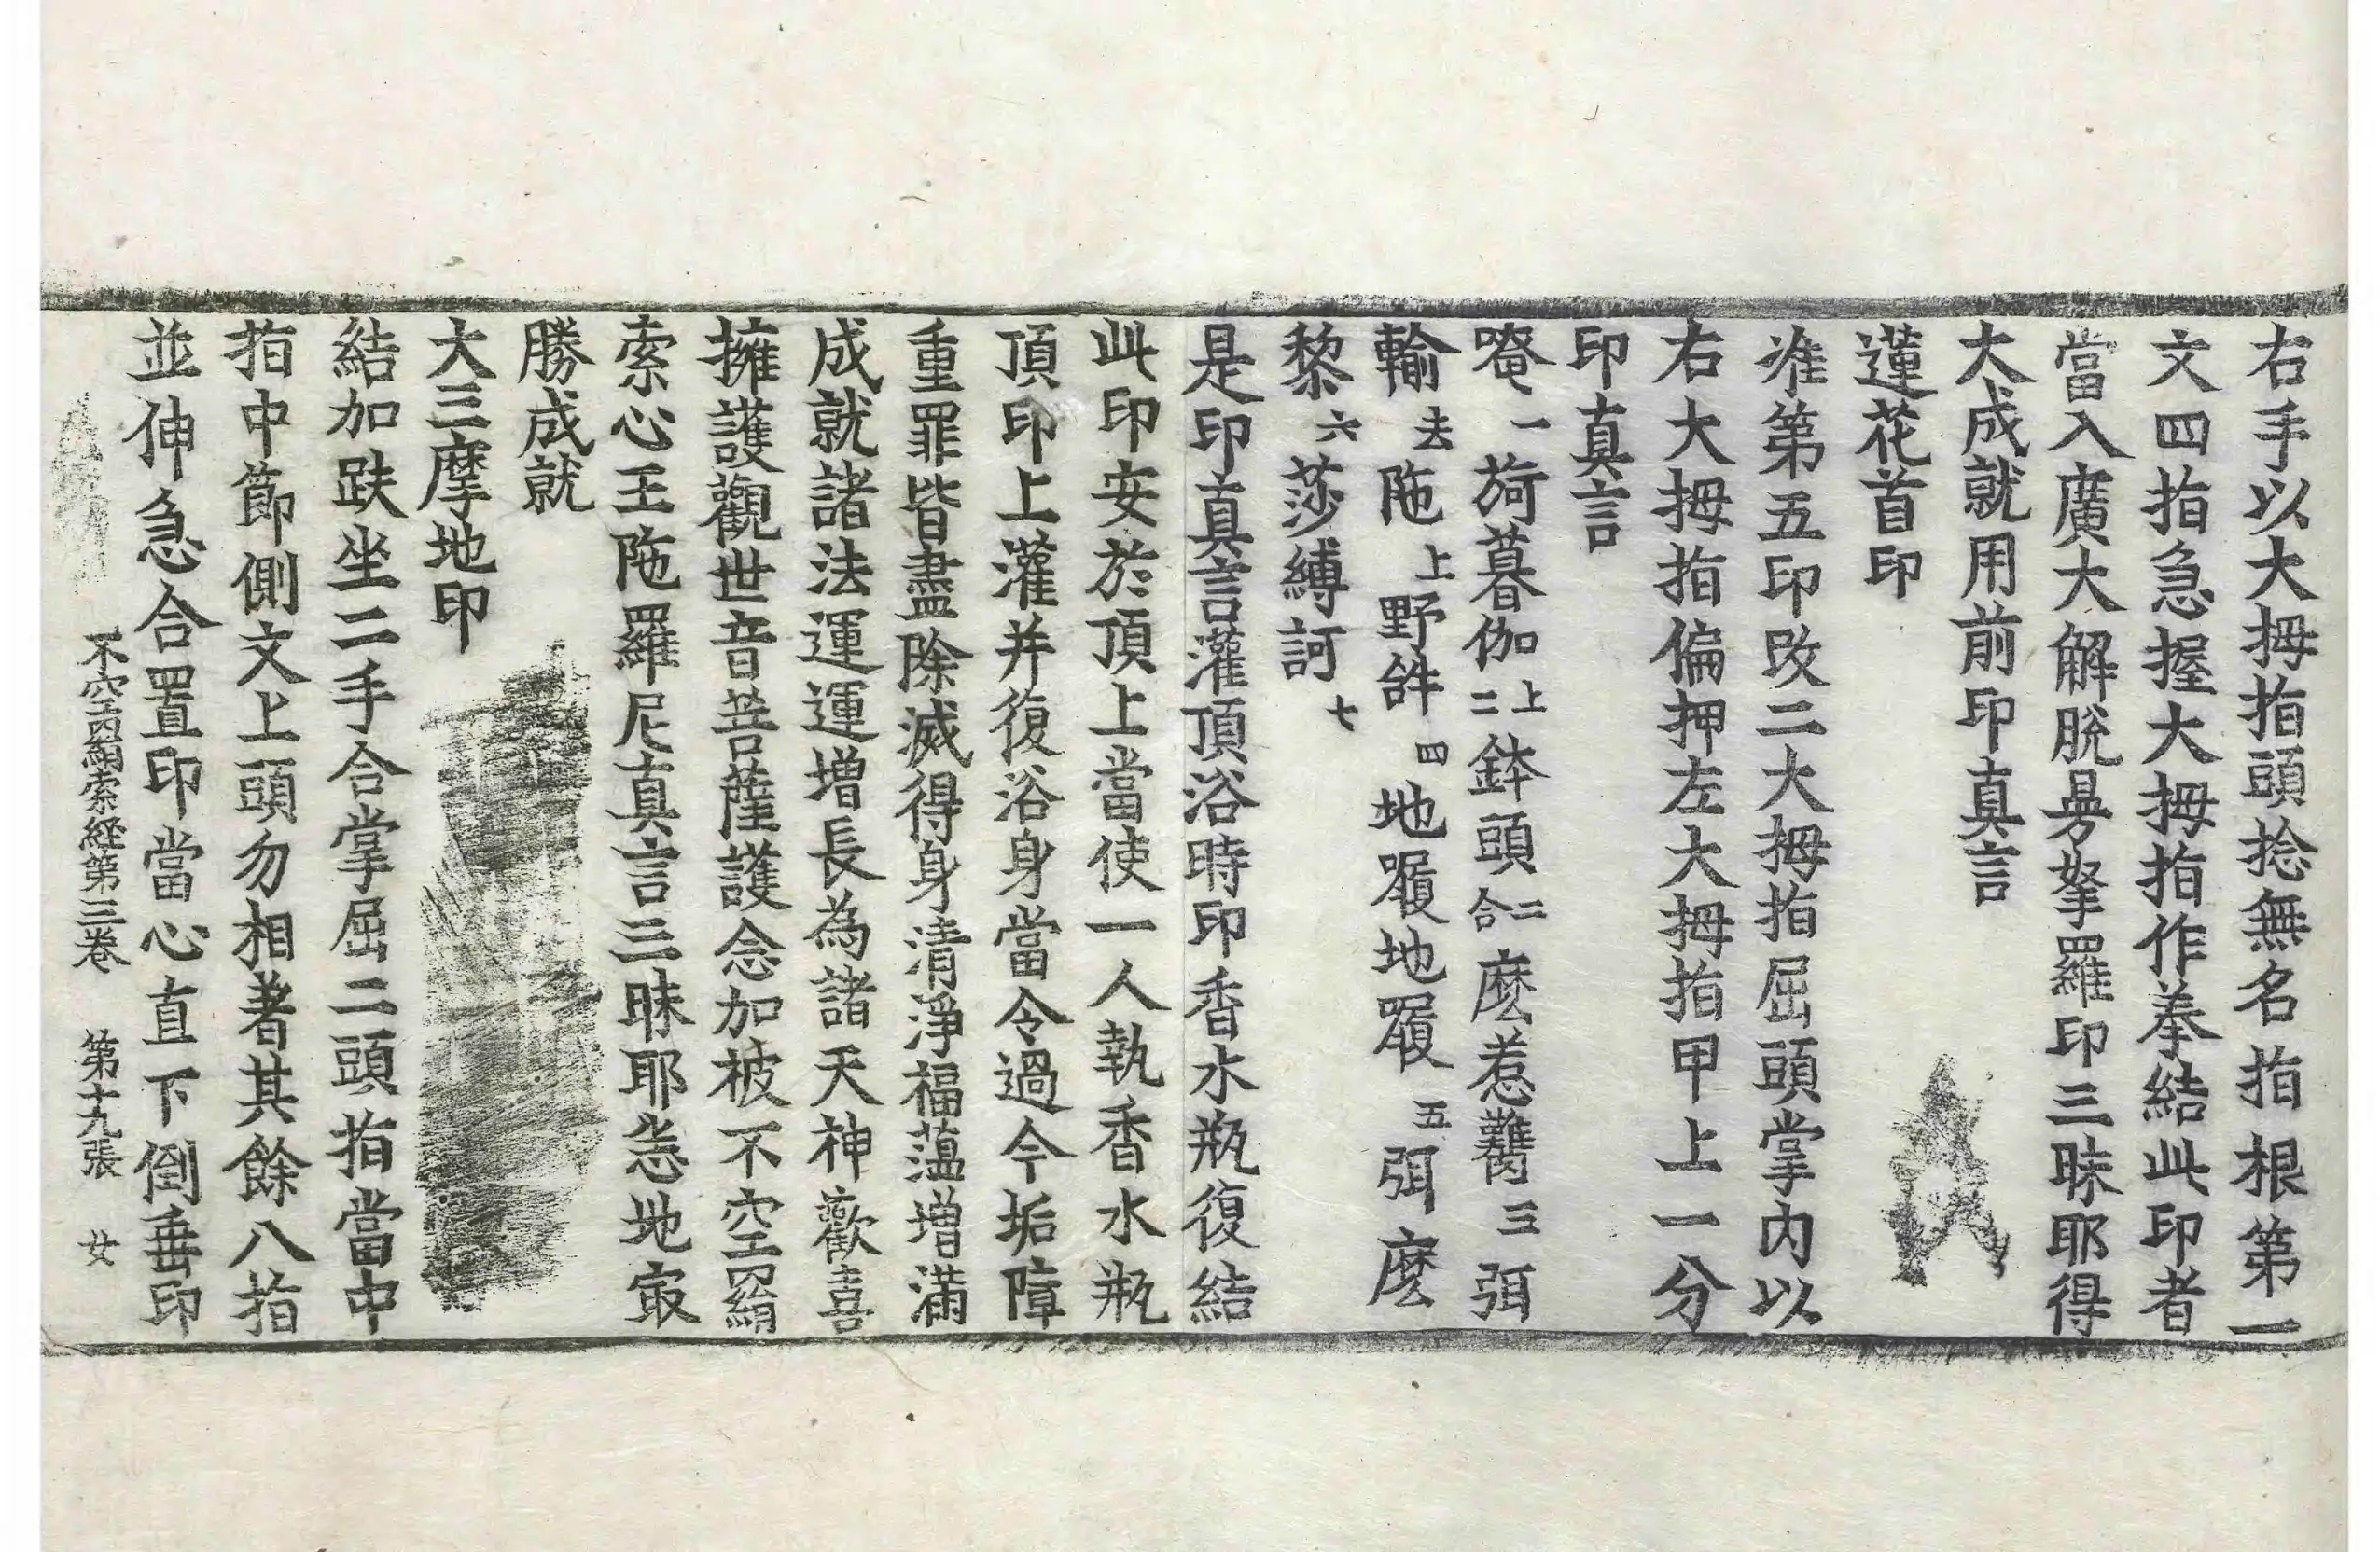 右手以大拇指頭捻無名指根第一
文四指急握大拇指作拳結此印者
當入廣大解脫曼拏羅印三昧耶得
大成就用前印真言
蓮花首印
准第五印改二大拇指屈頭掌內以
右大拇指偏押左大拇指甲上一分
印真言
唵一旖暮伽上二鉢頭二合麽惹鸛三弭
輸去陁上野𤙖四地履地履五弭麽
黎六莎縛訶七
是印真言灌頂浴時印香水瓶復結
此印安於頂上當使一人執香水瓶
頂印上灌并復浴身當令過今垢障
重罪皆盡除滅得身清淨福蘊增滿
成就諸法運運增長為諸天神歡喜
擁護觀世音菩薩護念加被不空羂
索心王陁羅尼真言三昧耶悉地㝡
勝成就
大三摩地印
結加趺坐二手合掌屈二頭指當中
指中節側文上頭勿相著其餘八指
並伸急合置印當心直下倒垂印
不空羂索経第三卷 第十九張 女